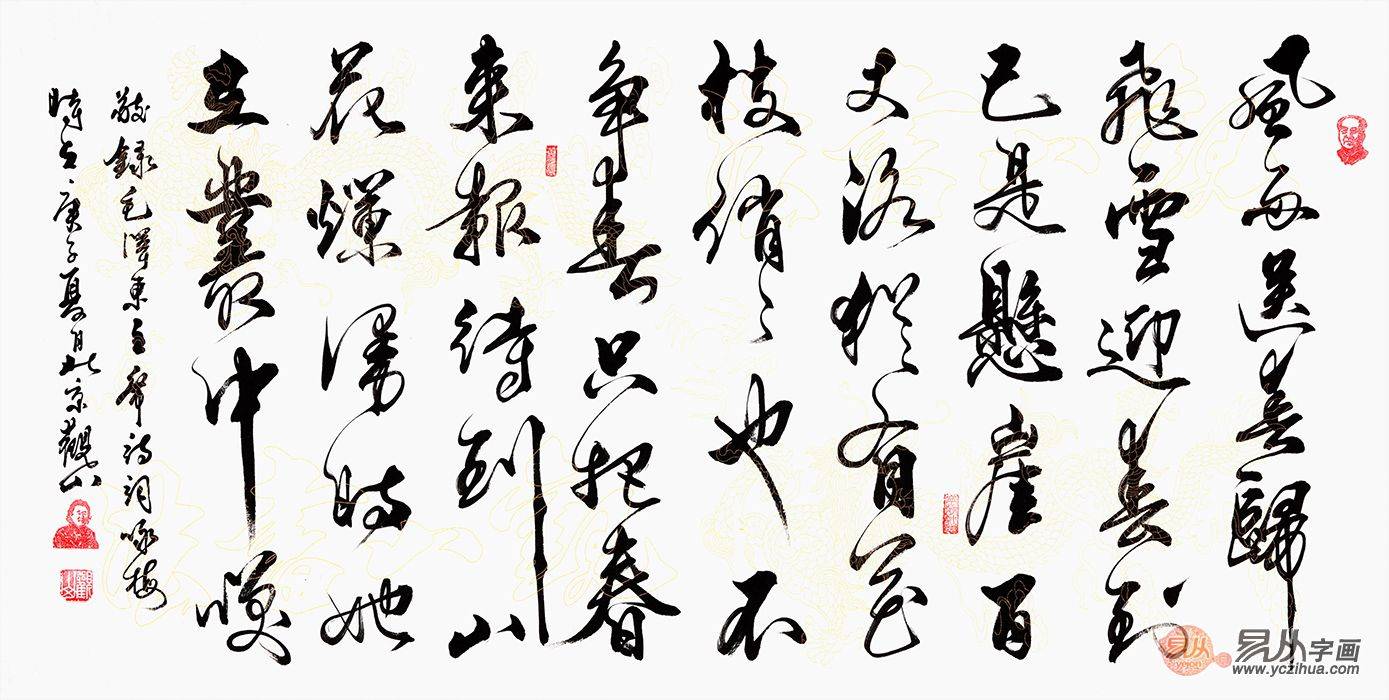 風雨送春歸
飛雪迎春到
已是懸崖百
丈冰猶有花
枝俏々也不
争春只把春
来報待到山
花爛漫時她
在叢中咲
敬録毛澤東主席詩詞咏梅
時在庚子夏月北京觀山
易从
易从字画
www.yczihua.com